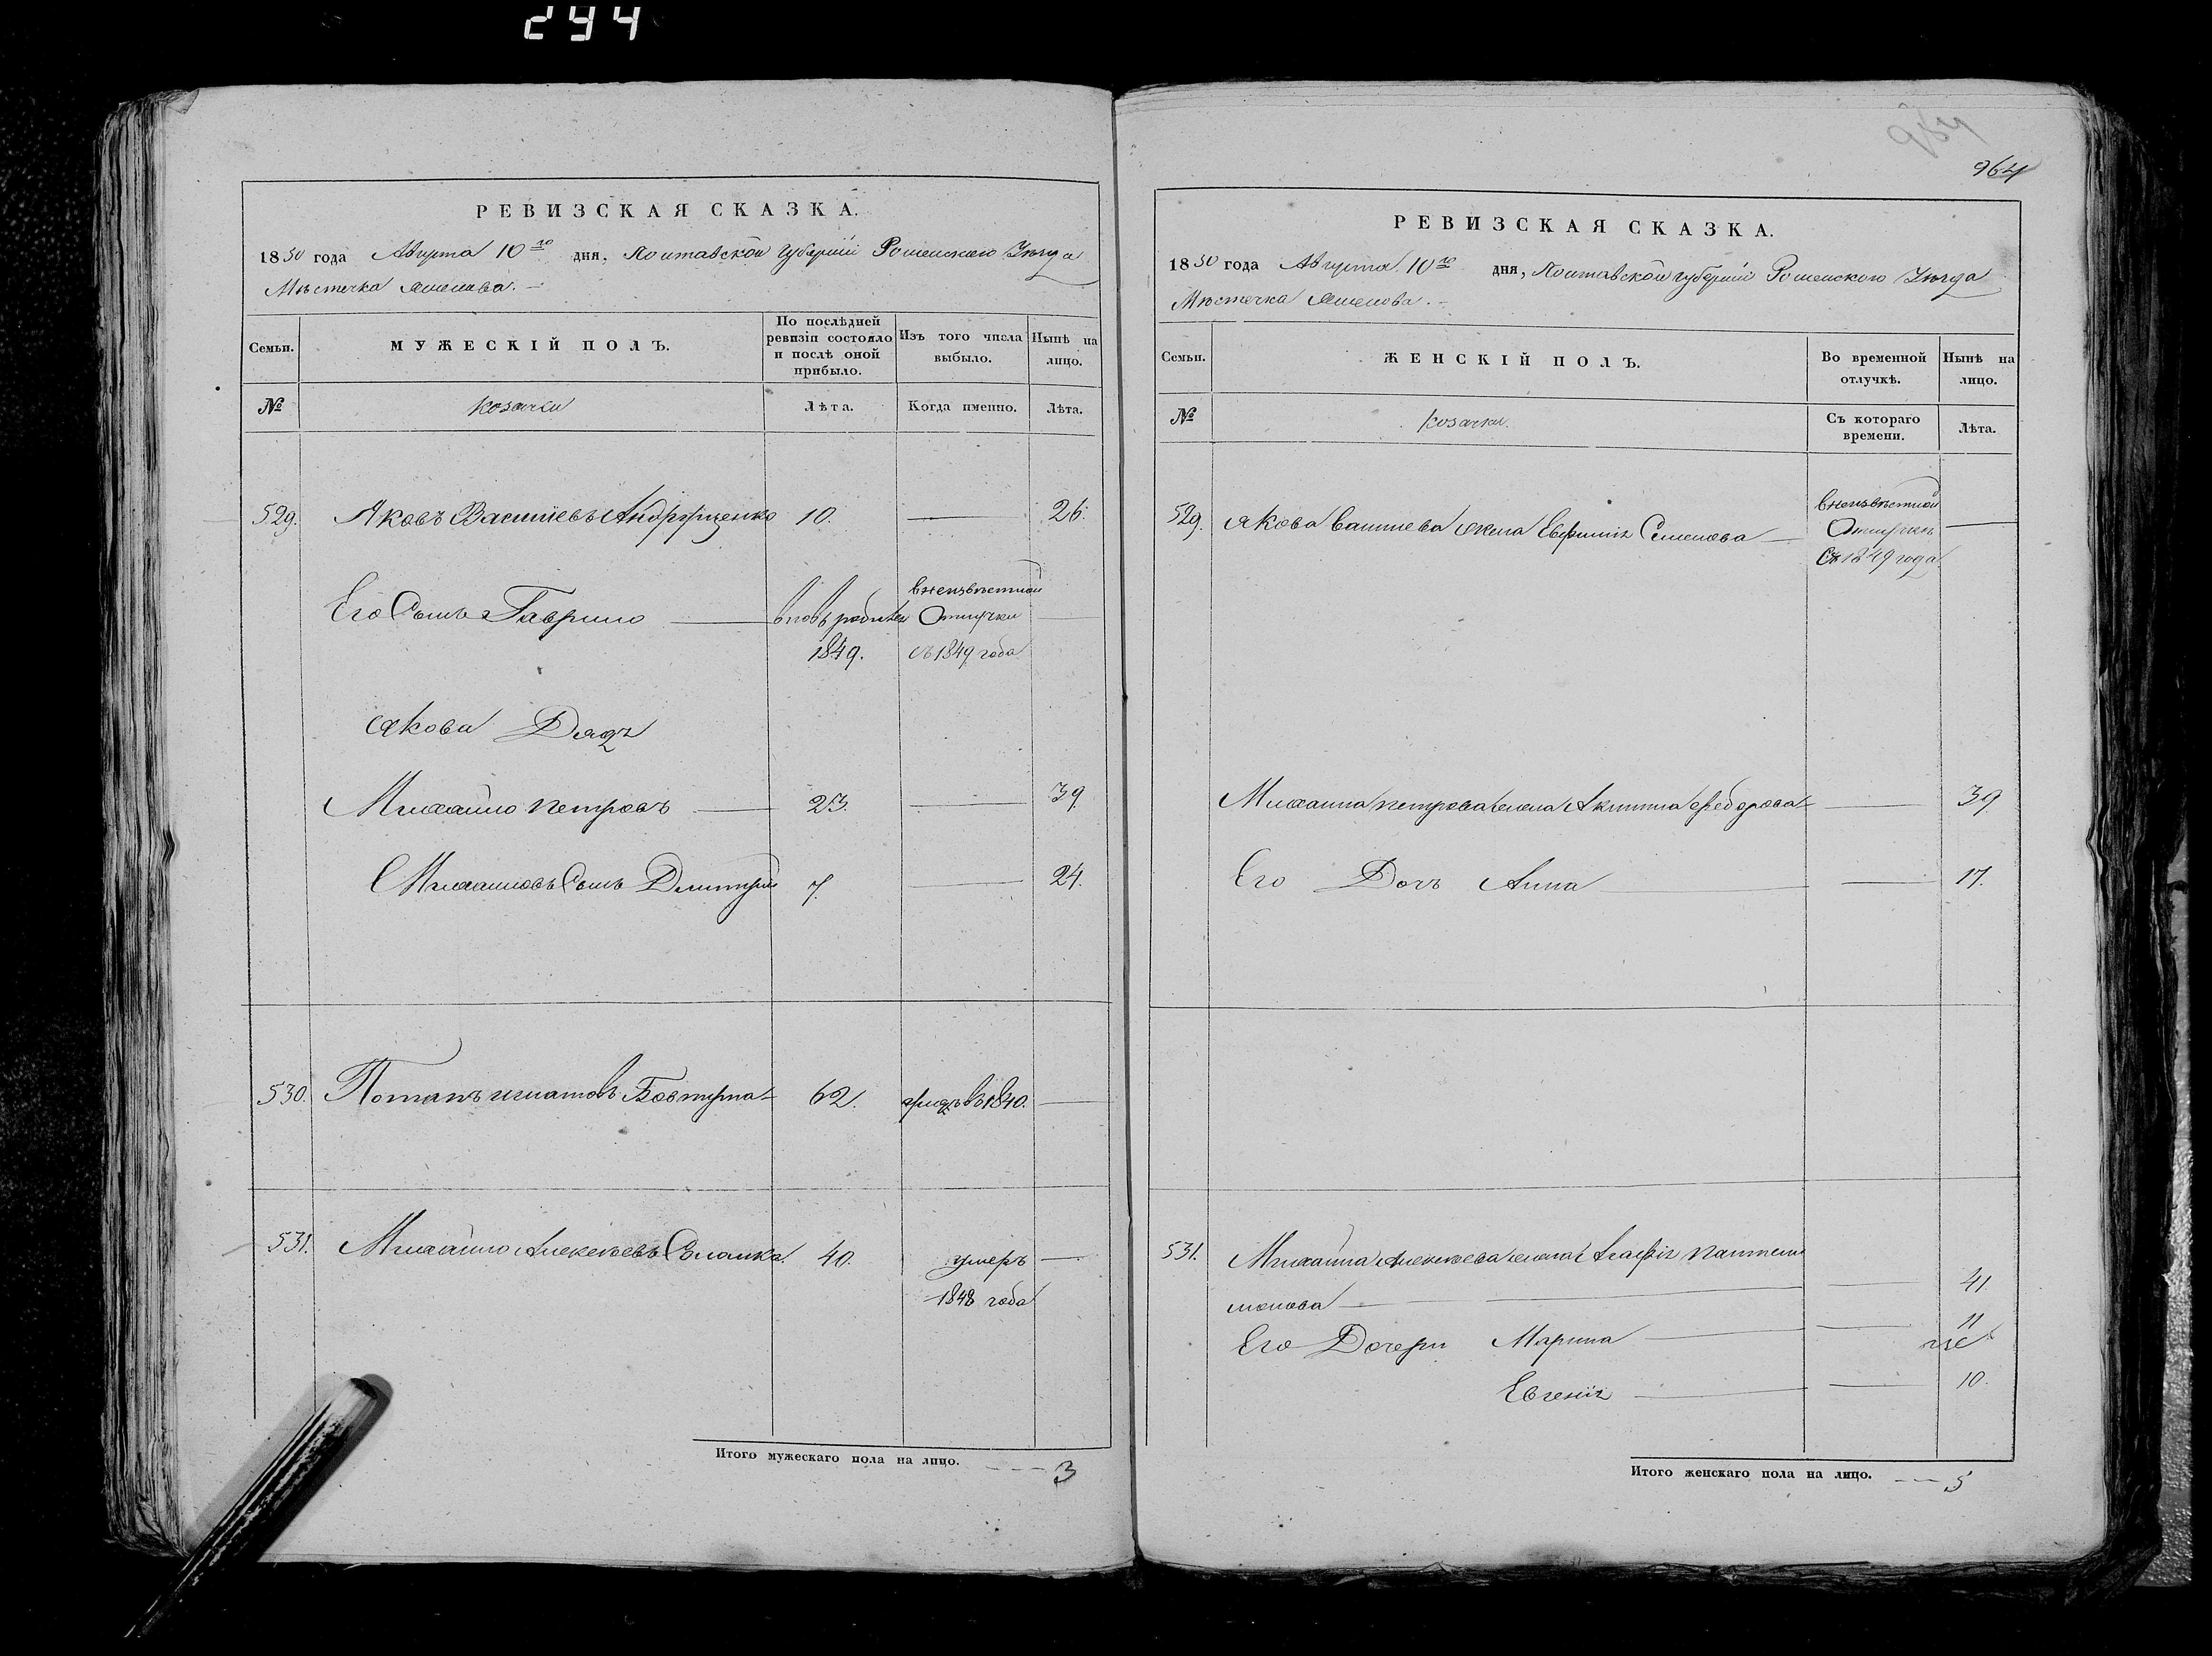 294
РЕВИЗСКАЯ СКАЗКА.
1850 года Августа 10го дня, Полтавской Губерніи Роменского Уѣзда
Мѣстечка
Семьи.
МУЖЕСКІЙ ПОЛЪ.
По послѣдней ревизіи состояло и послѣ оной прибыло.
Изъ того числа выбыло.
Нынѣ на лицо.
№
козачки
Лѣта.
Когда именно.
Лѣта.
529. Яковъ Васильевъ Андрущенко 10. — 26.
Его Сынъ Гаврило — вновь рожденъ 1849. в неизвѣстной Отлучки съ 1849 года —
Якова Дядя
Михайло Петровъ — 23. — 39
Михайловъ Сынъ Дмитрій 7. — 24.
530. Потапъ Игнатовъ 62. въ 1840. —
531. Михайло Алексѣевъ 40. умеръ 1848 года —
Итого мужескаго пола на лицо. --- 3
964
964
РЕВИЗСКАЯ СКАЗКА.
1850 года Августа 10го дня, Полтавской Губерніи Роменского Уѣзда
Мѣстечка
Семьи.
ЖЕНСКІЙ ПОЛЪ.
Во временной отлучкѣ.
Нынѣ на лицо.
№
козачки.
Съ котораго времени.
Лѣта.
529. Якова Васильева жена Ефросинія Семенова — в неизвѣстной Отлучкѣ Съ 1849 года —
Михайла Петрова жена Акилина Федорова — 39
Его Дочь Анна — — 17.
531. Михайла Алексѣева жена Агафія Пантели
монова — — 41.
Его Дочери Марина — — 11
Евгенія — — 10.
Итого женскаго пола на лицо. --- 5